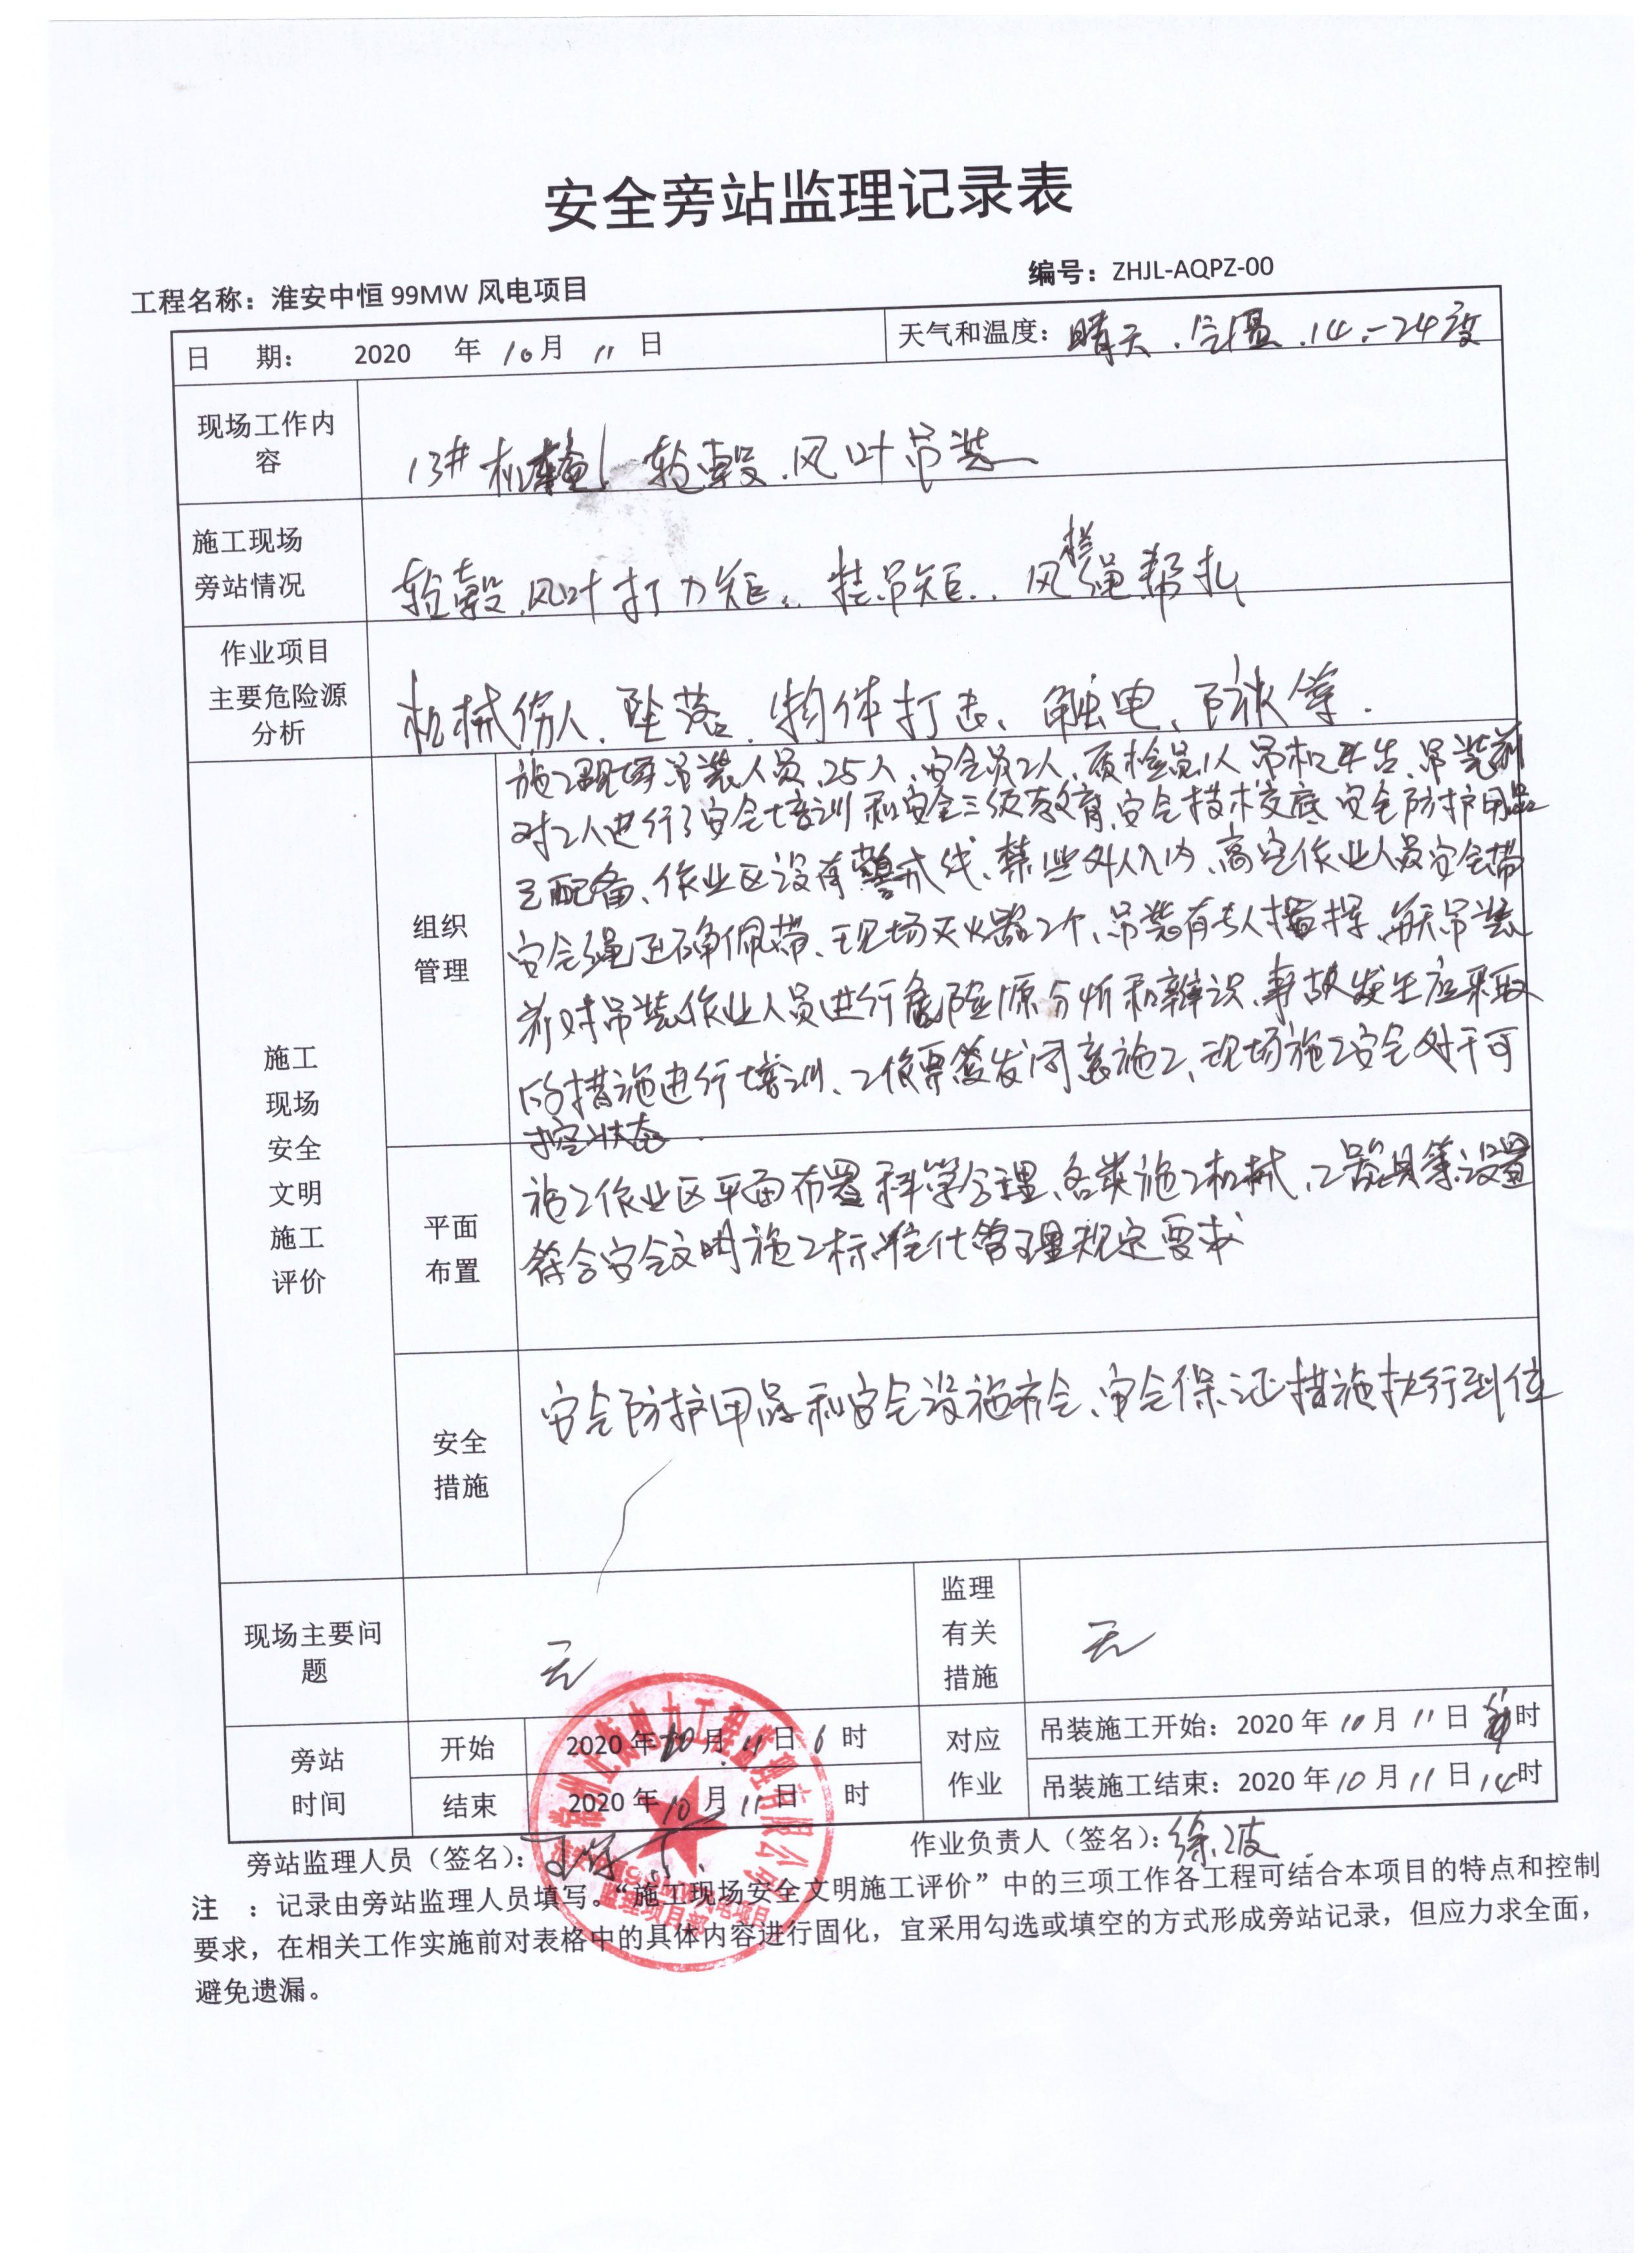 安全旁站监理记录表
工程名称：淮安中恒 99MW 风电项目
编号：ZHJL-AQPZ-00
日 期： 2020 年 10 月 11 日
天气和温度：晴天．气温．14．-24度
现场工作内
容
13# 机舱、轮毂．风叶吊装
施工现场
旁站情况
轮毂．风叶打力矩．．挂吊矩．．风栏绳帮扎
作业项目
主要危险源
分析
机械伤人．坠落．物体打击、触电、防火等．
施工
现场
安全
文明
施工
评价
组织
管理
施工现场吊装人员．25人、安全员2人、质检员1人 吊机 台、吊装前
对工人进行了安全培训和安全三级教育、安全技术交底 安全防护用品
已配备、作业区设有警戒线、禁止外人入内、高空作业人员安全带
安全绳正确佩带、现场灭火器2个、吊装有专人指挥、每天吊装
前对吊装作业人员进行危险源分析和辨识、事故发生应采取
的措施进行培训、工作票签发同意施工、现场施工安全处于可
控状态．
平面
布置
施工作业区平面布置科学合理、各类施工机械、工器具等设置
符合安全文明施工标准化管理规定要求
安全
措施
安全防护用品和安全设施齐全、安全保证措施执行到位
现场主要问
题
无
监理
有关
措施
无
旁站
时间
开始
2020 年 10 月 11 日 6 时
结束
2020 年 10 月 11 日 时
对应
作业
吊装施工开始：2020 年 10 月 11 日 时
吊装施工结束：2020 年 10 月 11 日 14 时
旁站监理人员（签名）：
作业负责人（签名）：徐波
注 ：记录由旁站监理人员填写。“施工现场安全文明施工评价”中的三项工作各工程可结合本项目的特点和控制
要求，在相关工作实施前对表格中的具体内容进行固化，宜采用勾选或填空的方式形成旁站记录，但应力求全面，
避免遗漏。
电力工程监理有限公司
监理项目部